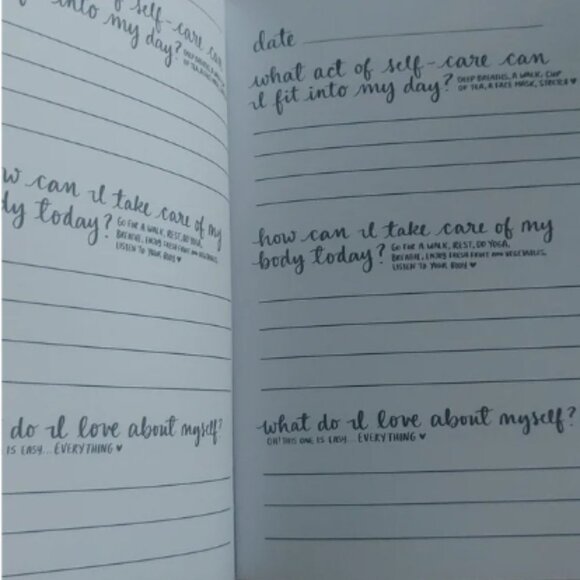 of self-care can
fit into my day?
how can I take care of my
body today? GO FOR A WALK, REST, DO YOGA,
BREATHE, ENJOY FRESH FRUIT AND VEGETABLES,
LISTEN TO YOUR BODY ♥
do I love about myself?
IS EASY... EVERYTHING ♥
date
what act of self-care can
I fit into my day? DEEP BREATHS, A WALK, CUP
OF TEA, A FACE MASK, STRETCH ♥
how can I take care of my
body today? GO FOR A WALK, REST, DO YOGA,
BREATHE, ENJOY FRESH FRUIT AND VEGETABLES,
LISTEN TO YOUR BODY ♥
what do I love about myself?
OH! THIS ONE IS EASY... EVERYTHING ♥